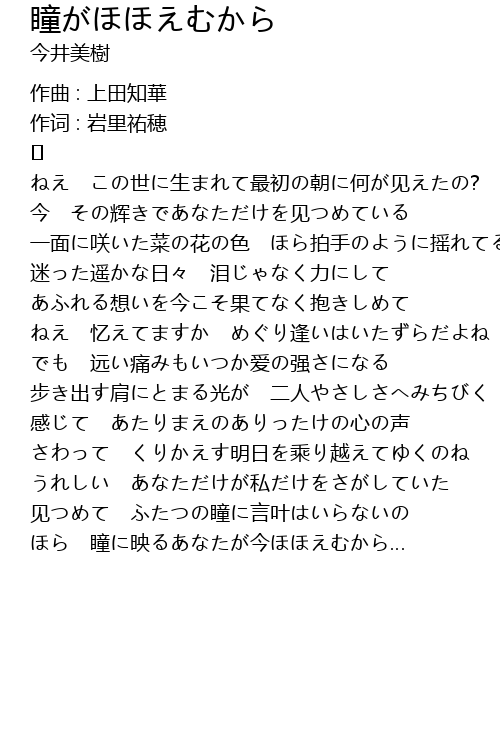 瞳がほほえむから
今井美樹
作曲 : 上田知華
作词 : 岩里祐穂
[]
ねえ　この世に生まれて最初の朝に何が见えたの?
今　その辉きであなただけを见つめている
一面に咲いた菜の花の色　ほら拍手のように摇れて
迷った遥かな日々　泪じゃなく力にして
あふれる想いを今こそ果てなく抱きしめて
ねえ　忆えてますか　めぐり逢いはいたずらだよね
でも　远い痛みもいつか爱の强さになる
歩き出す肩にとまる光が　二人やさしさへみちびく
感じて　あたりまえのありったけの心の声
さわって　くりかえす明日を乘り越えてゆくのね
うれしい　あなただけが私だけをさがしていた
见つめて　ふたつの瞳に言叶はいらないの
ほら　瞳に映るあなたが今ほほえむから...